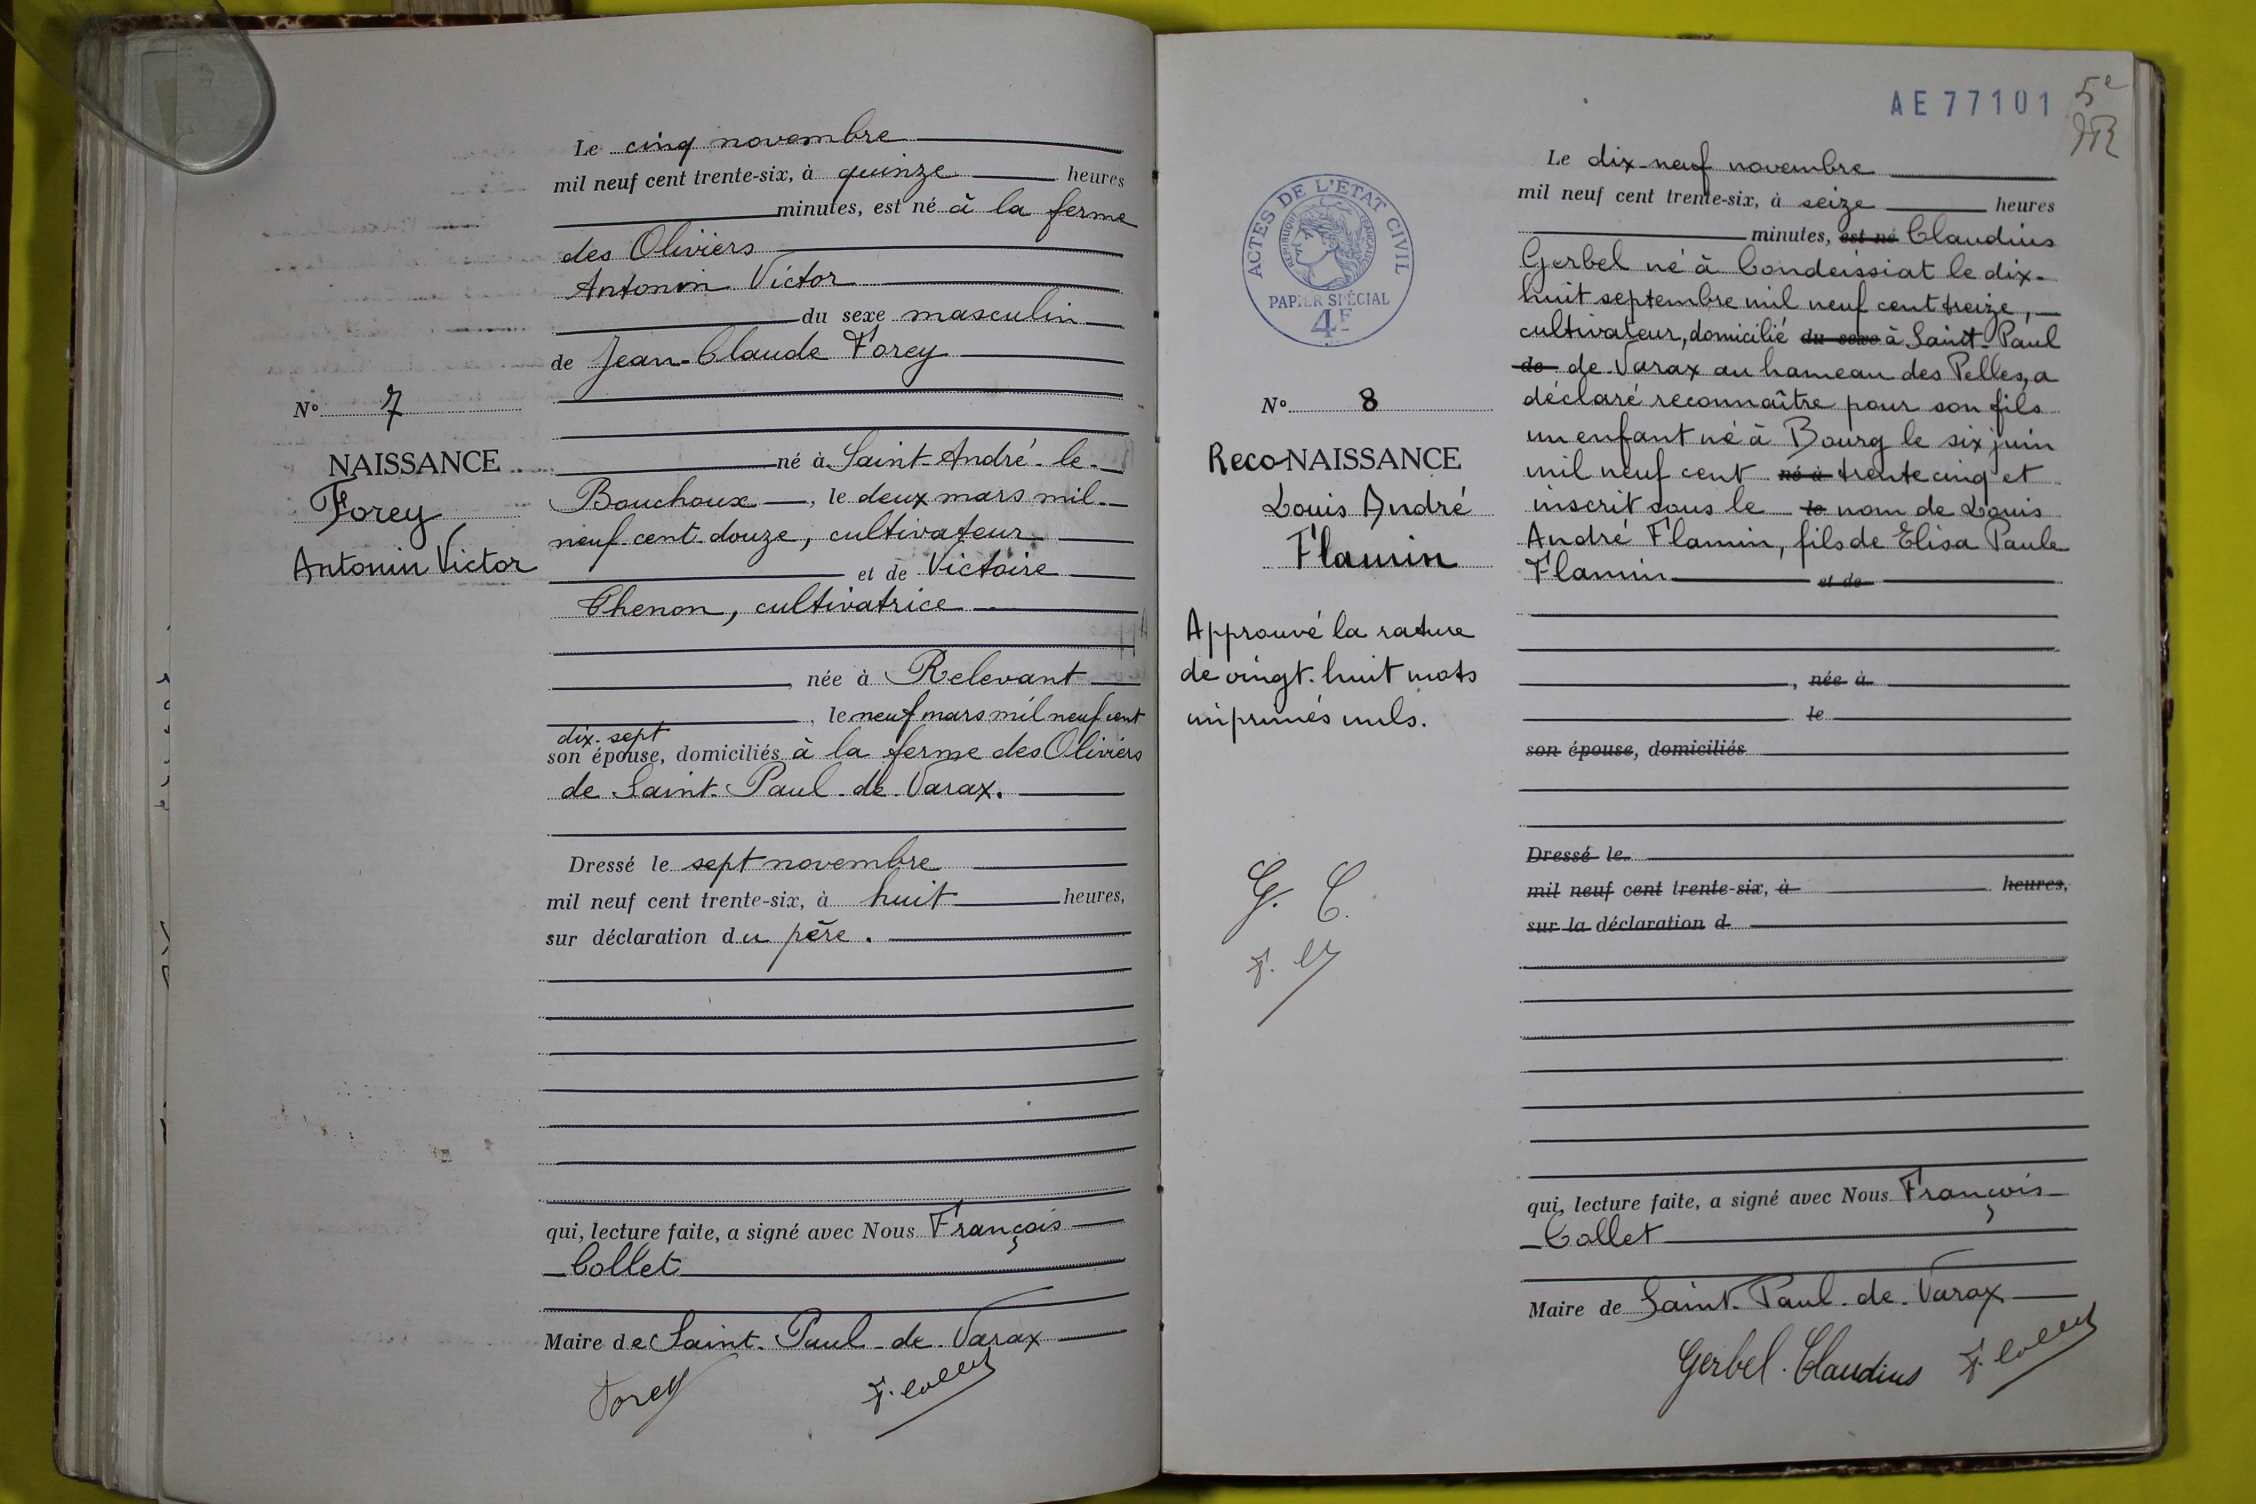 Le cinq novembre
mil neuf cent trente-six, à quinze heures
minutes, est né à la ferme
des Oliviers
Antonin Victor
du sexe masculin
de Jean-Claude Forey
N° 7
NAISSANCE
Forey
Antonin Victor
né à Saint-André-le-
Bouchoux, le deux mars mil-
neuf-cent-douze, cultivateur
et de Victoire
Chenon, cultivatrice
, née à Relevant
, le neuf mars mil neuf cent
dix-sept
son épouse, domiciliés à la ferme des Oliviers
de Saint-Paul-de-Varax.
Dressé le sept novembre
mil neuf cent trente-six, à huit heures,
sur déclaration du père.
qui, lecture faite, a signé avec Nous François
Collet
Maire de Saint-Paul-de-Varax
Forey F. Collet
AE77101 5e
ACTES DE L'ETAT CIVIL
REPUBLIQUE FRANÇAISE
PAPIER SPÉCIAL
4F
N° 8
RecoNAISSANCE
Louis André
Flamin
Approuvé la rature
de vingt-huit mots
imprimés nuls.
G. C.
Le dix-neuf novembre
mil neuf cent trente-six, à seize heures
minutes, est né Claudius
Gerbel né à Condeissiat le dix-
huit septembre mil neuf cent treize,
cultivateur, domicilié du sexe à Saint-Paul
de de-Varax au hameau des Pelles, a
déclaré reconnaître pour son fils
un enfant né à Bourg le six juin
mil neuf cent né à trente cinq et
inscrit sous le le nom de Louis
André Flamin, fils de Elisa Paule
Flamin et de
, née à
le
son épouse, domiciliés
Dressé le
mil neuf cent trente-six, à heures,
sur la déclaration d
qui, lecture faite, a signé avec Nous François
Collet
Maire de Saint-Paul-de-Varax
Gerbel. Claudius F. Collet